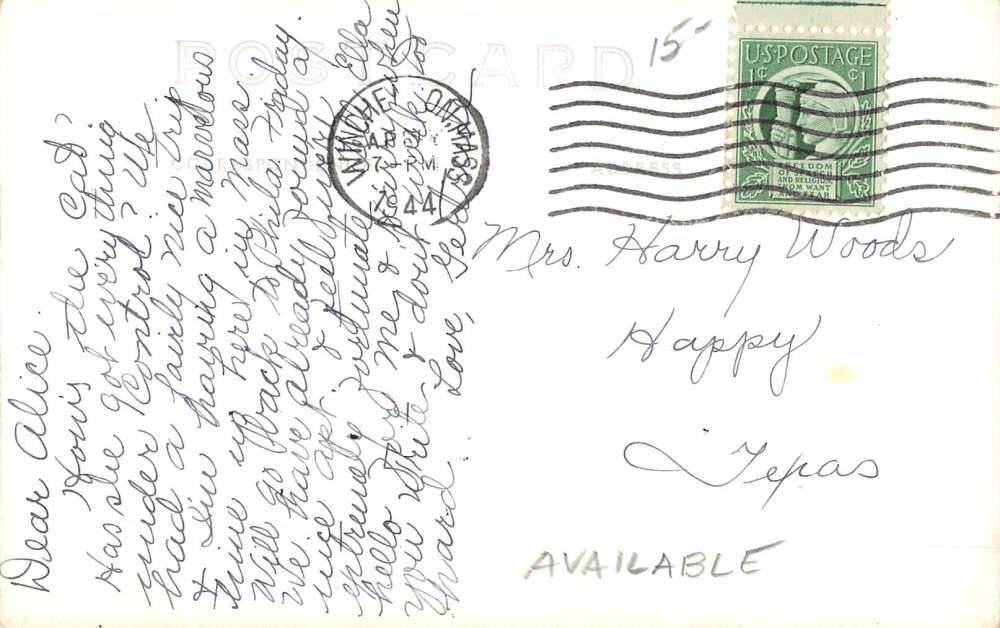 POST CARD
15-
U.S. POSTAGE
1¢ ¢1
FREEDOM
OF SPEECH
AND RELIGION,
FROM WANT
AND FEAR
WINCHENDON, MASS.
APR 24
7-PM
1944
CORRESPONDENCE
ADDRESS
Dear Alice.
How's the Cat?
Has she got everything
under control? We
had a fairly nice trip
& I'm having a marvelous
time up here in Mass.
Will go back to Phila. Friday.
We have already found a
nice apt. & feel
extremely fortunate. Ella
hello for me &
you write & don't
hard
Love,
Mrs. Harry Woods
Happy
Texas
AVAILABLE